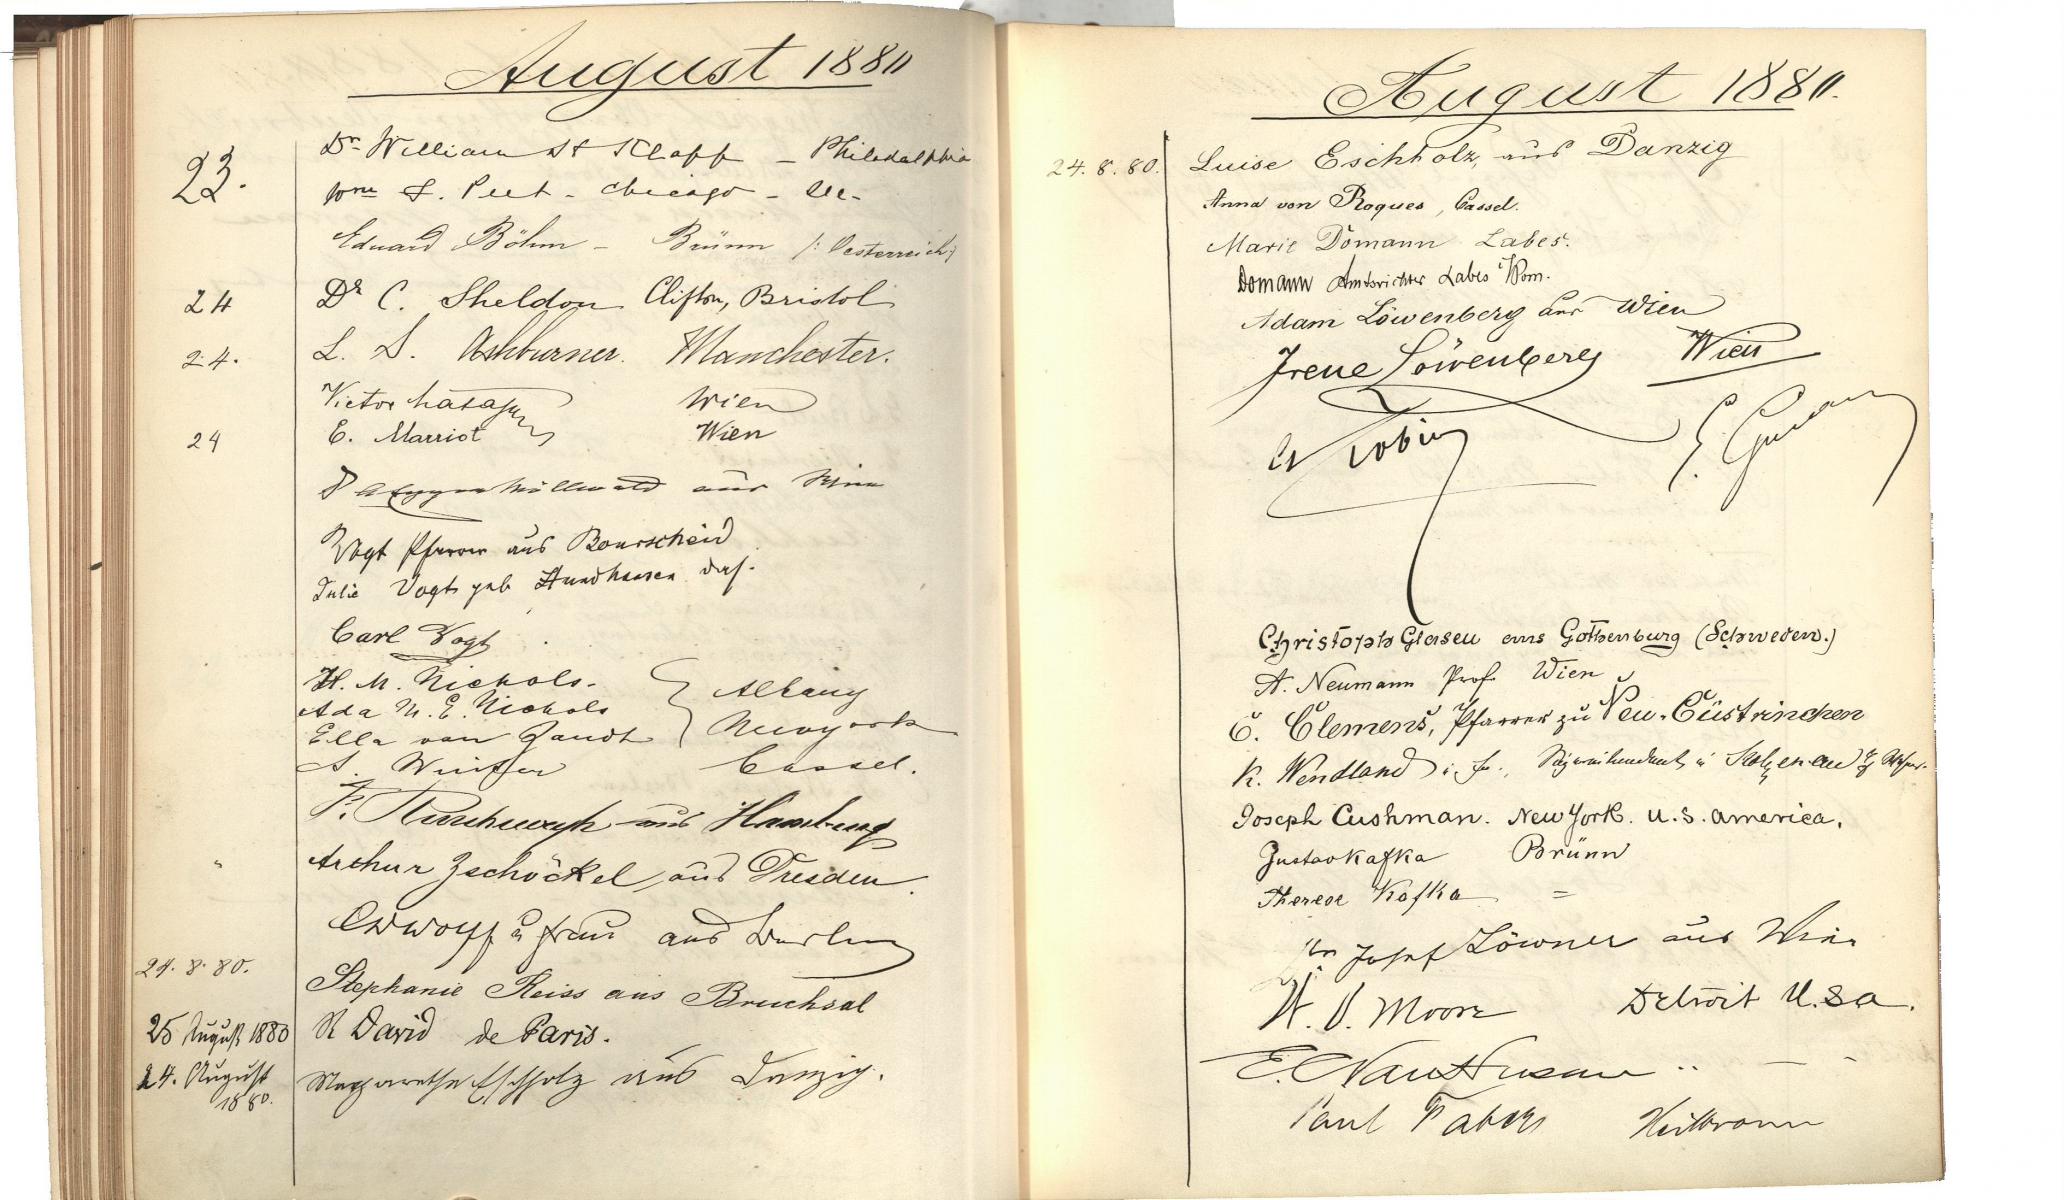 August 1880
23.
Dr. William H Klapp - Philadelphia
Wm S. Peet - Chicago - Ill -
Eduard Böhm - Brünn (: Oesterreich :)
24 Dr C. Sheldon Clifton, Bristol
24. L. S. Ashburner. Manchester.
Victor Wien
24 E. Marriot Wien
aus
Vogt Pfarrer aus Bourscheid
Julie Vogt geb Hundhausen das.
Carl Vogt
H. M. Nichols. Albany
Ada M. E. Nichols Newyork
Ella van Zandt
Cassel.
F. aus Hamburg
" Arthur Zschöckel, aus Dresden.
Wolff u Frau aus Berlin
24. 8. 80. Stephanie Reiss aus Bruchsal
25 August 1880 R David de Paris.
24. August 1880. Margarethe Eschholz aus Danzig.
August 1880.
24. 8. 80. Luise Eschholz, aus Danzig
Anna von Roques, Cassel.
Marie Domann Labes.
Domann Amtsrichter Labes Pom.
Adam Löwenberg aus Wien
Irene Löwenberg Wien
Christoph Glasen aus Gothenburg (Schweden.)
A. Neumann Prof. Wien
C. Clemens, Pfarrer zu Neu-Cüstrinchen
K. Wendland
Joseph Cushman. New York. U.S. America.
Gustav Kafka Brünn
Therese Kafka =
Josef Löwner aus Wien
W. V. Moore Detroit U.S.a.
E. Van Husan " — -
Paul Faber Heilbronn